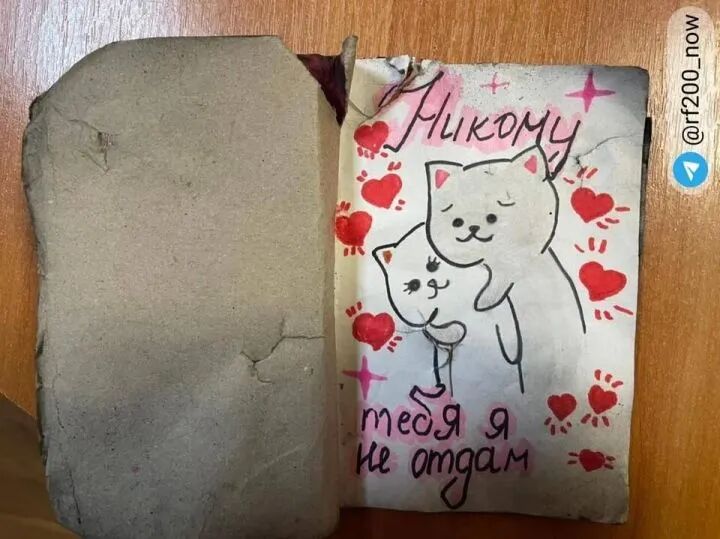 Никому
тебя я
не отдам
@rf200_now